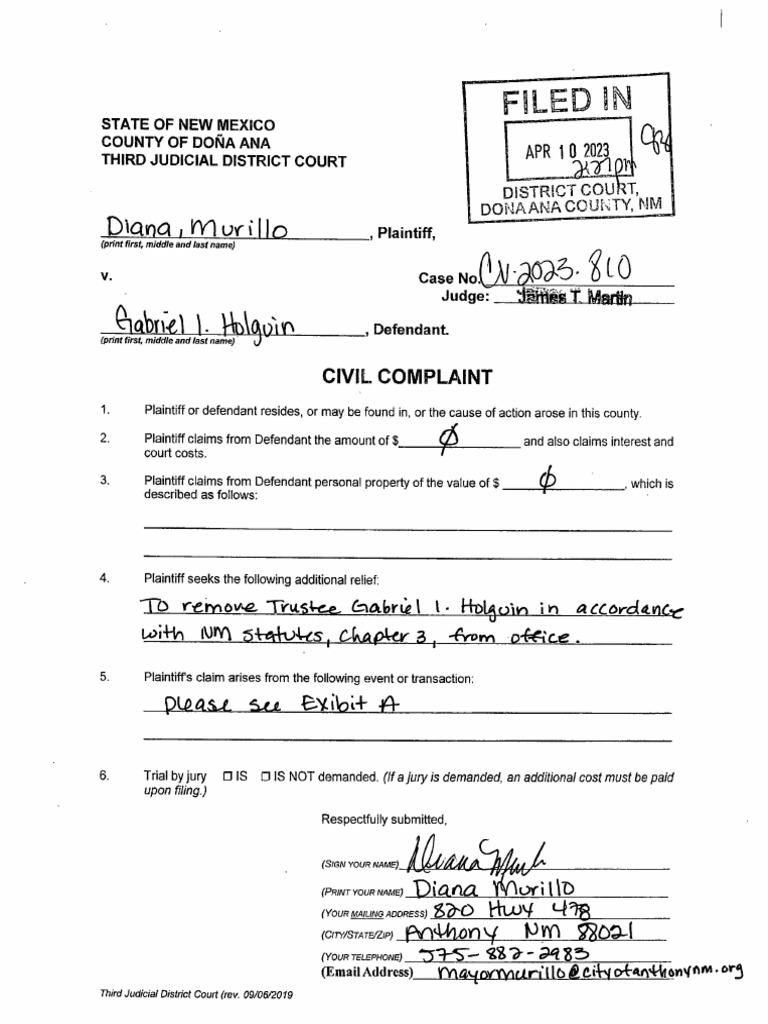 FILED IN
APR 10 2023
2:27pm
DISTRICT COURT,
DOÑA ANA COUNTY, NM
STATE OF NEW MEXICO
COUNTY OF DOÑA ANA
THIRD JUDICIAL DISTRICT COURT
Diana, Murillo, Plaintiff,
(print first, middle and last name)
v.
Case No. CV-2023-810
Judge: James T. Martin
Gabriel I. Holguin, Defendant.
(print first, middle and last name)
CIVIL COMPLAINT
1. Plaintiff or defendant resides, or may be found in, or the cause of action arose in this county.
2. Plaintiff claims from Defendant the amount of $ Ø and also claims interest and
court costs.
3. Plaintiff claims from Defendant personal property of the value of $ Ø, which is
described as follows:
4. Plaintiff seeks the following additional relief:
To remove Trustee Gabriel I. Holguin in accordance
with NM Statutes, Chapter 3, from office.
5. Plaintiff's claim arises from the following event or transaction:
please see Exibit A
6. Trial by jury ☐ IS ☐ IS NOT demanded. (If a jury is demanded, an additional cost must be paid
upon filing.)
Respectfully submitted,
(SIGN YOUR NAME) Diana Murillo
(PRINT YOUR NAME) Diana Murillo
(YOUR MAILING ADDRESS) 820 Hwy 478
(CITY/STATE/ZIP) Anthony NM 88021
(YOUR TELEPHONE) 575-882-2983
(Email Address) mayormurillo@cityofanthonynm.org
Third Judicial District Court (rev. 09/06/2019